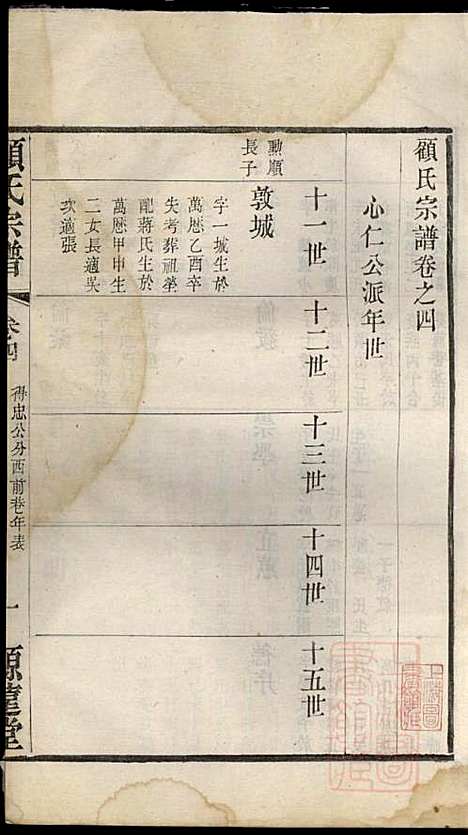 顧氏宗譜卷之四
心仁公派年世
十一世
十二世
十三世
十四世
十五世
勲順
長子
敦城
字一城生於
萬厯乙酉卒
失考葬祖塋
配蔣氏生於
萬厯甲申生
二女長適吳
次適張
顧氏宗譜
卷四
得忠公分西前巷年表
一